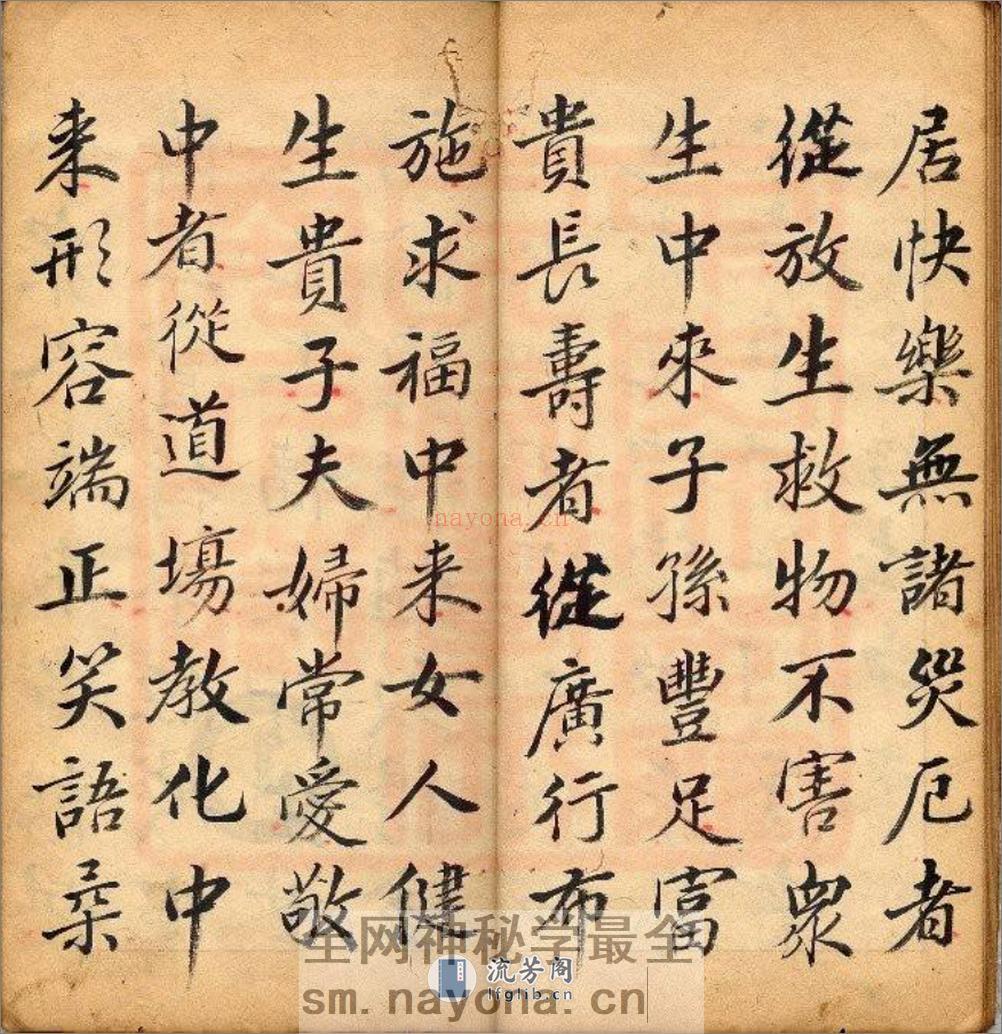 居快樂無諸災厄者
從放生救物不害衆
生中來子孫豐足富
貴長壽者從廣行布
施求福中来女人健
生貴子夫婦常愛敬
中者從道場教化中
来形容端正笑語柔
nayona.cn
全网神秘学最全
流芳阁
lfglib.cn
sm.nayona.cn